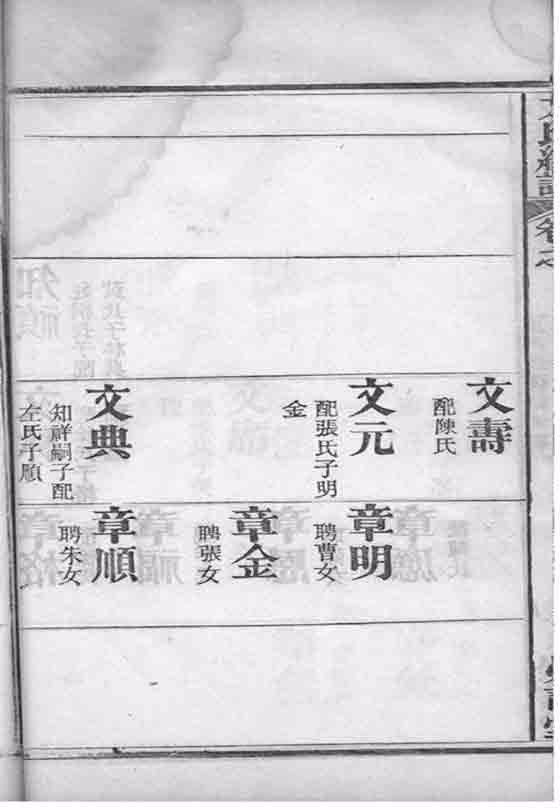 文壽
配陳氏
文元
配張氏子明
金
文典
知祥嗣子配
左氏子順
章明
聘曹女
章金
聘張女
章順
聘朱女